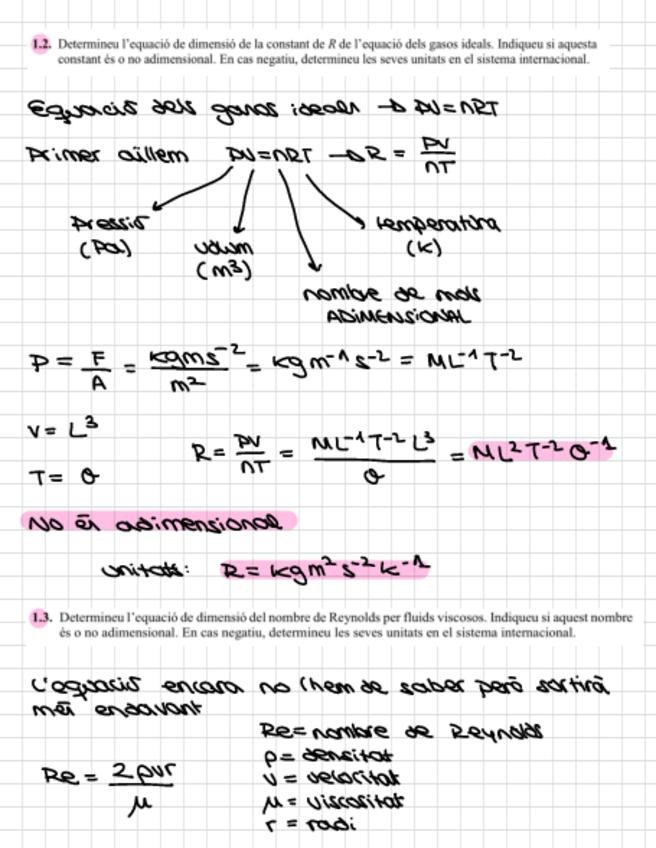 1.2. Determineu l'equació de dimensió de la constant de R de l'equació dels gasos ideals. Indiqueu si aquesta
constant és o no adimensional. En cas negatiu, determineu les seves unitats en el sistema internacional.
Equació dels gasos ideals → PV=nRT
Primer aïllem PV=nRT → R = PV/nT
Pressió
(Pa)
Volum
(m³)
nombre de mols
ADIMENSIONAL
temperatura
(K)
P = F/A = kgms⁻²/m² = kgm⁻¹s⁻² = ML⁻¹T⁻²
V = L³
T = θ
R = PV/nT = ML⁻¹T⁻²L³/θ = ML²T⁻²θ⁻¹
No és adimensional
unitats: R = kgm²s⁻²K⁻¹
1.3. Determineu l'equació de dimensió del nombre de Reynolds per fluids viscosos. Indiqueu si aquest nombre
és o no adimensional. En cas negatiu, determineu les seves unitats en el sistema internacional.
L'equació encara no l'hem de saber però sortirà
més endavant
Re = 2ρvr/μ
Re = nombre de Reynolds
ρ = densitat
v = velocitat
μ = viscositat
r = radi